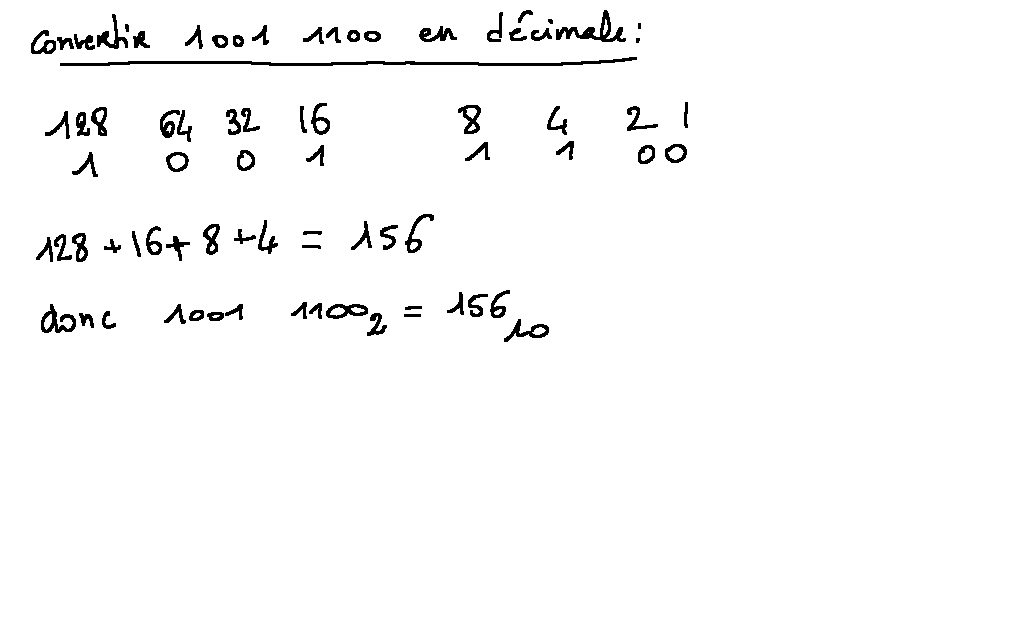 convertir 1001 1100 en décimale :
128 64 32 16 8 4 2 1
1 0 0 1 1 1 0 0
128 + 16 + 8 + 4 = 156
donc 1001 1100₂ = 156₁₀